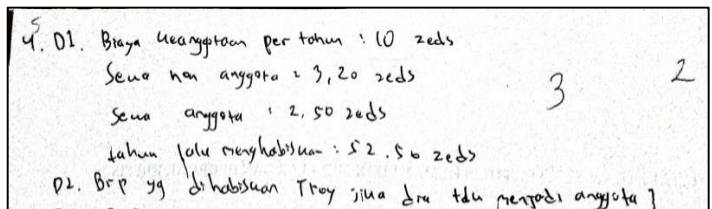 5
4. D1. Biaya keanggotaan per tahun : 10 zeds
Sewa non anggota : 3,20 zeds
Sewa anggota : 2.50 zeds
3 2
tahun lalu menghabiskan : 52.50 zeds
D2. Brp yg dihabiskan Troy jika dia tdk menjadi anggota ?